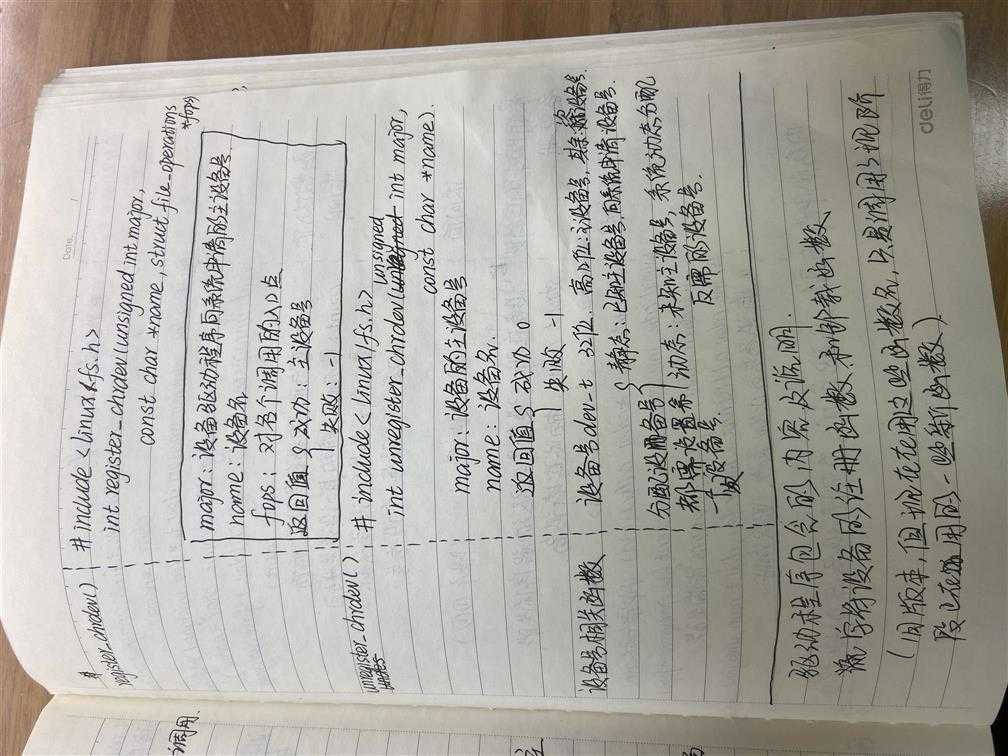 Date.
#
register_chrdev()
#include <linux/fs.h>
int register_chrdev(unsigned int major,
const char *name, struct file_operations
*fops)
major: 设备驱动程序向系统申请的主设备号
name: 设备名
fops: 对各个调用的入口点
返回值 { 成功: 主设备号
失败: -1
unregister_chrdev()
#include <linux/fs.h>
unsigned
int unregister_chrdev( int major,
const char *name).
major: 设备的主设备号
name: 设备名.
返回值 { 成功 0
失败 -1
设备号相关函数
设备号dev_t 32位. 高12位:主设备号, 其余:次设备号.
分配设备号 { 静态: 已知主设备号,向系统申请设备号.
都需设置第 动态: 未知主设备号, 系统动态分配
一次设备号 反馈的设备号.
驱动程序包含的内容及说明.
流字符设备的注册函数和卸载函数
(旧版本,但现在在用这些函数名,只是调用了现阶
段正在用的一些新函数).
deli得力
调用.